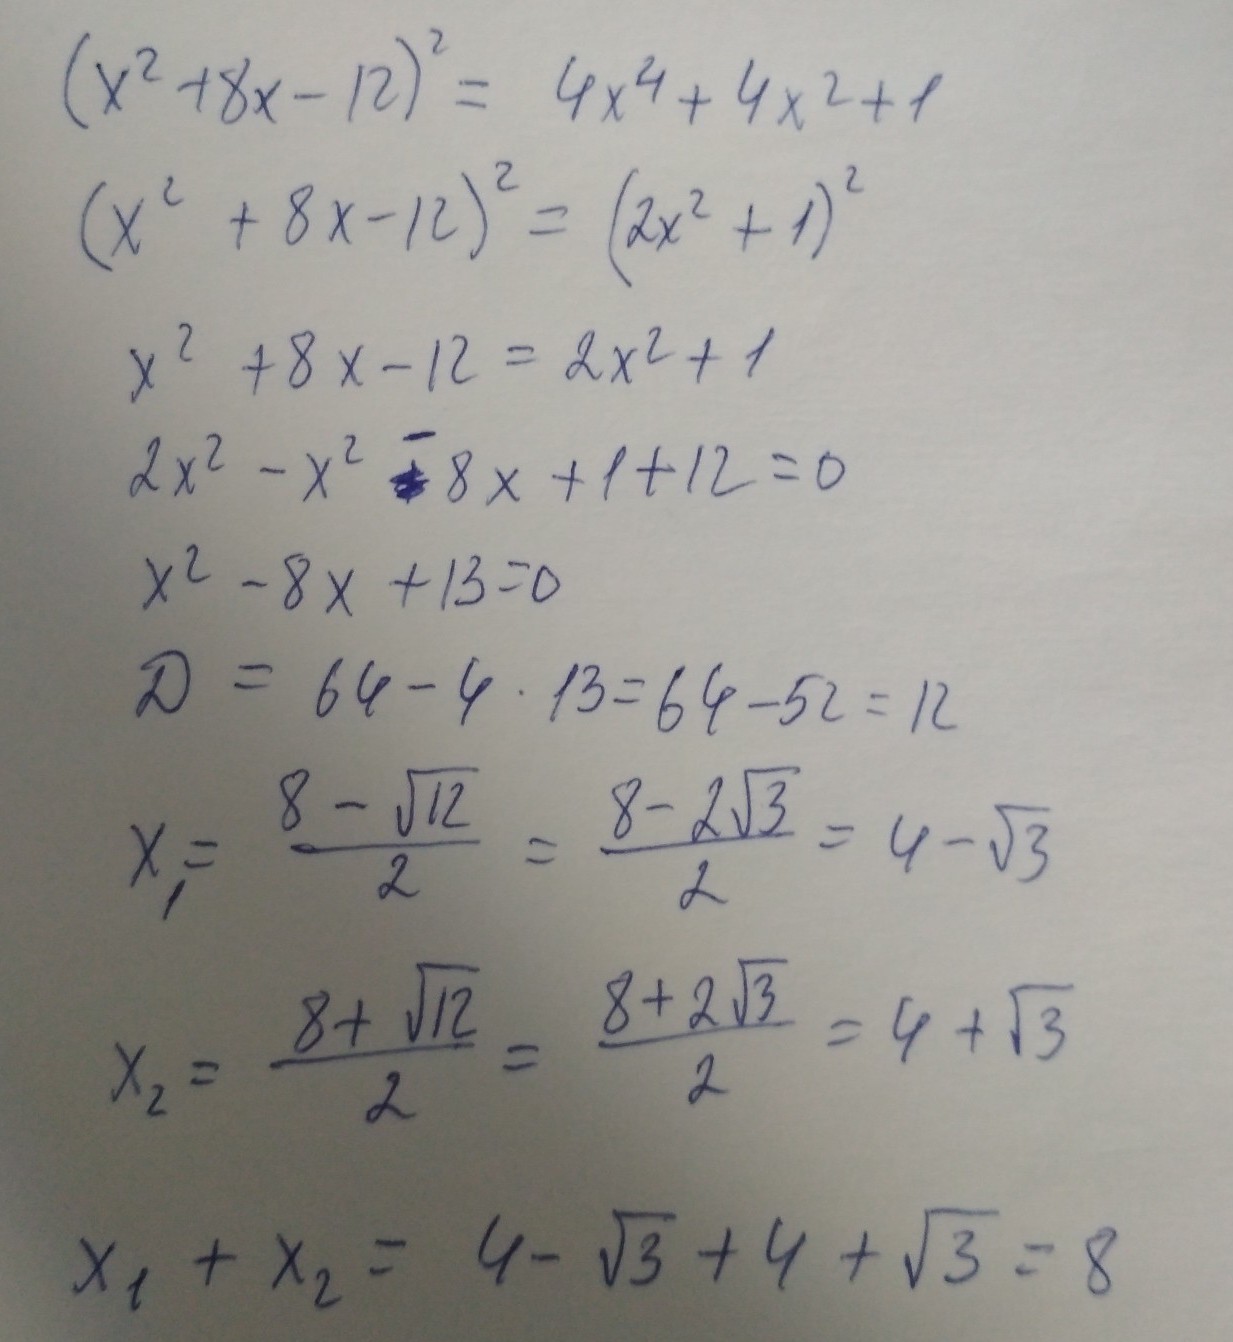 (x² + 8x - 12)² = 4x⁴ + 4x² + 1
(x² + 8x - 12)² = (2x² + 1)²
x² + 8x - 12 = 2x² + 1
2x² - x² - 8x + 1 + 12 = 0
x² - 8x + 13 = 0
D = 64 - 4 · 13 = 64 - 52 = 12
x₁ = (8 - √12)/2 = (8 - 2√3)/2 = 4 - √3
x₂ = (8 + √12)/2 = (8 + 2√3)/2 = 4 + √3
x₁ + x₂ = 4 - √3 + 4 + √3 = 8